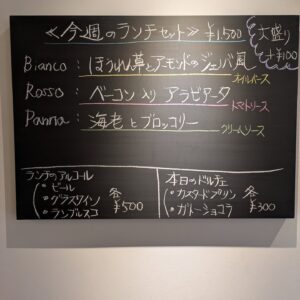 ≪今週のランチセット≫ ¥1,500
大盛り
+¥100
Bianco : ほうれん草とアーモンドのジェノバ風
オイルソース
Rosso : ベーコン入り アラビアータ
トマトソース
Panna : 海老とブロッコリー
クリームソース
ランチのアルコール
・ビール
・グラスワイン
・ランブルスコ
各
¥500
本日のドルチェ
・カスタードプリン
・ガトーショコラ
各
¥300